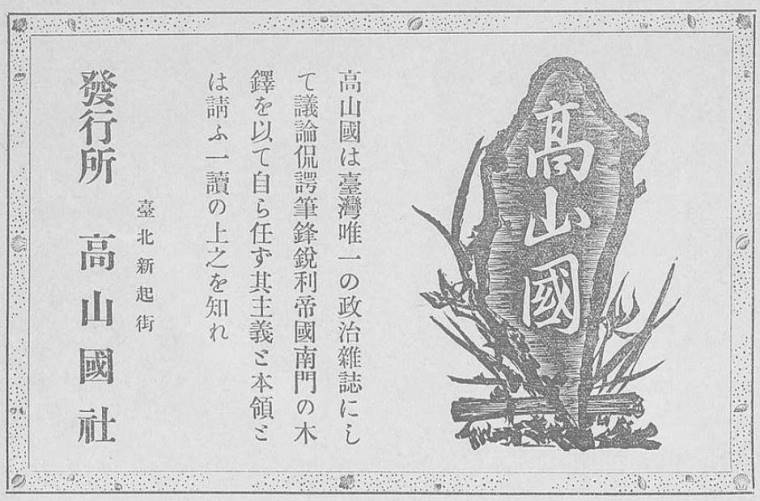 髙山國
高山國は臺灣唯一の政治雜誌にし
て議論侃諤筆鋒銳利帝國南門の木
鐸を以て自ら任ず其主義と本領と
は請ふ一讀の上之を知れ
臺北新起街
發行所 高山國社